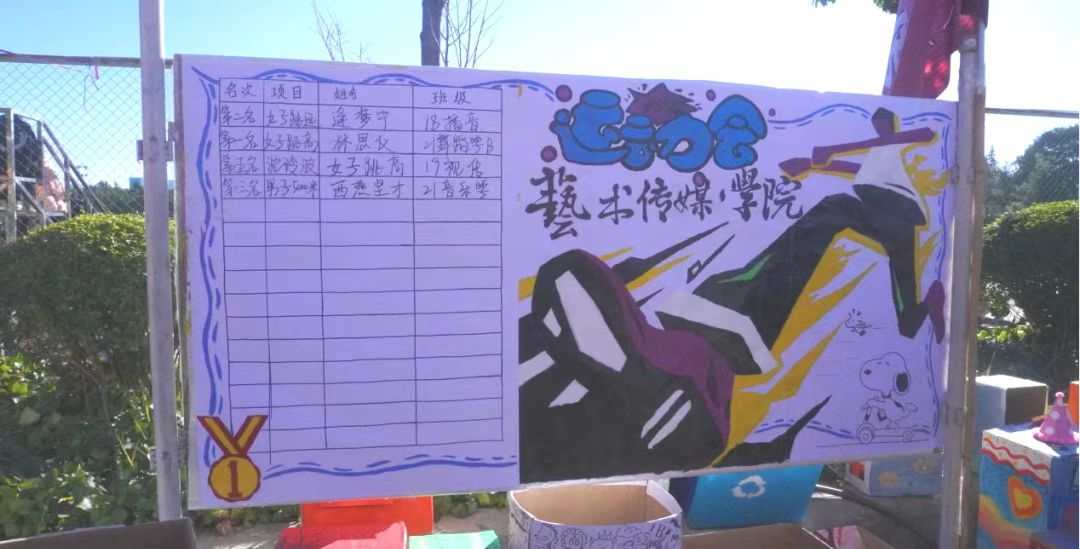 名次 项目 姓名 班级
第二名 女子跳远 梦宁 18播音
第一名 女子跳高 林思仪 21舞蹈学B
第五名 沈冷波 女子跳高 19视传
第三名 男子5000米 西热坚才 21音乐学
运动会
藝术传媒·学院
1